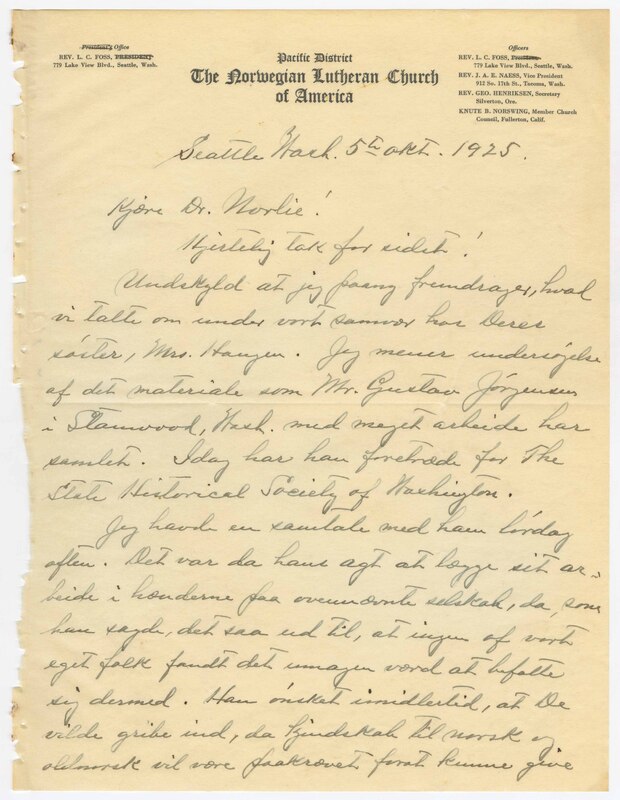 President's Office
REV. L. C. FOSS, PRESIDENT
779 Lake View Blvd., Seattle, Wash.
Pacific District
The Norwegian Lutheran Church
of America
Officers
REV. L. C. FOSS, President
779 Lake View Blvd., Seattle, Wash.
REV. J. A. E. NAESS, Vice President
912 So. 17th St., Tacoma, Wash.
REV. GEO. HENRIKSEN, Secretary
Silverton, Ore.
KNUTE B. NORSWING, Member Church
Council, Fullerton, Calif.
Seattle Wash. 5th okt. 1925.
Kjære Dr. Norlie!
Hjertelig tak for sidst!
Undskyld at jeg paany fremdrager, hvad
vi talte om under vort samvær hos Deres
søster, Mrs. Hansen. Jeg mener undersøgelse
af det materiale som Mr. Gustav Jørgensen
i Stanwood, Wash. med meget arbeide har
samlet. Idag har han foretræde for The
State Historical Society of Washington.
Jeg havde en samtale med ham lørdag
aften. Det var da hans agt at lægge sit ar-
beide i hænderne paa ovennævnte selskab, da, som
han sagde, det saa ud til, at ingen af vort
eget folk fandt det umagen værd at befatte
sig dermed. Han ønsket imidlertid, at De
vilde gribe ind, da kjendskab til norsk og
oldnorsk vil være paakrævet forat kunne give